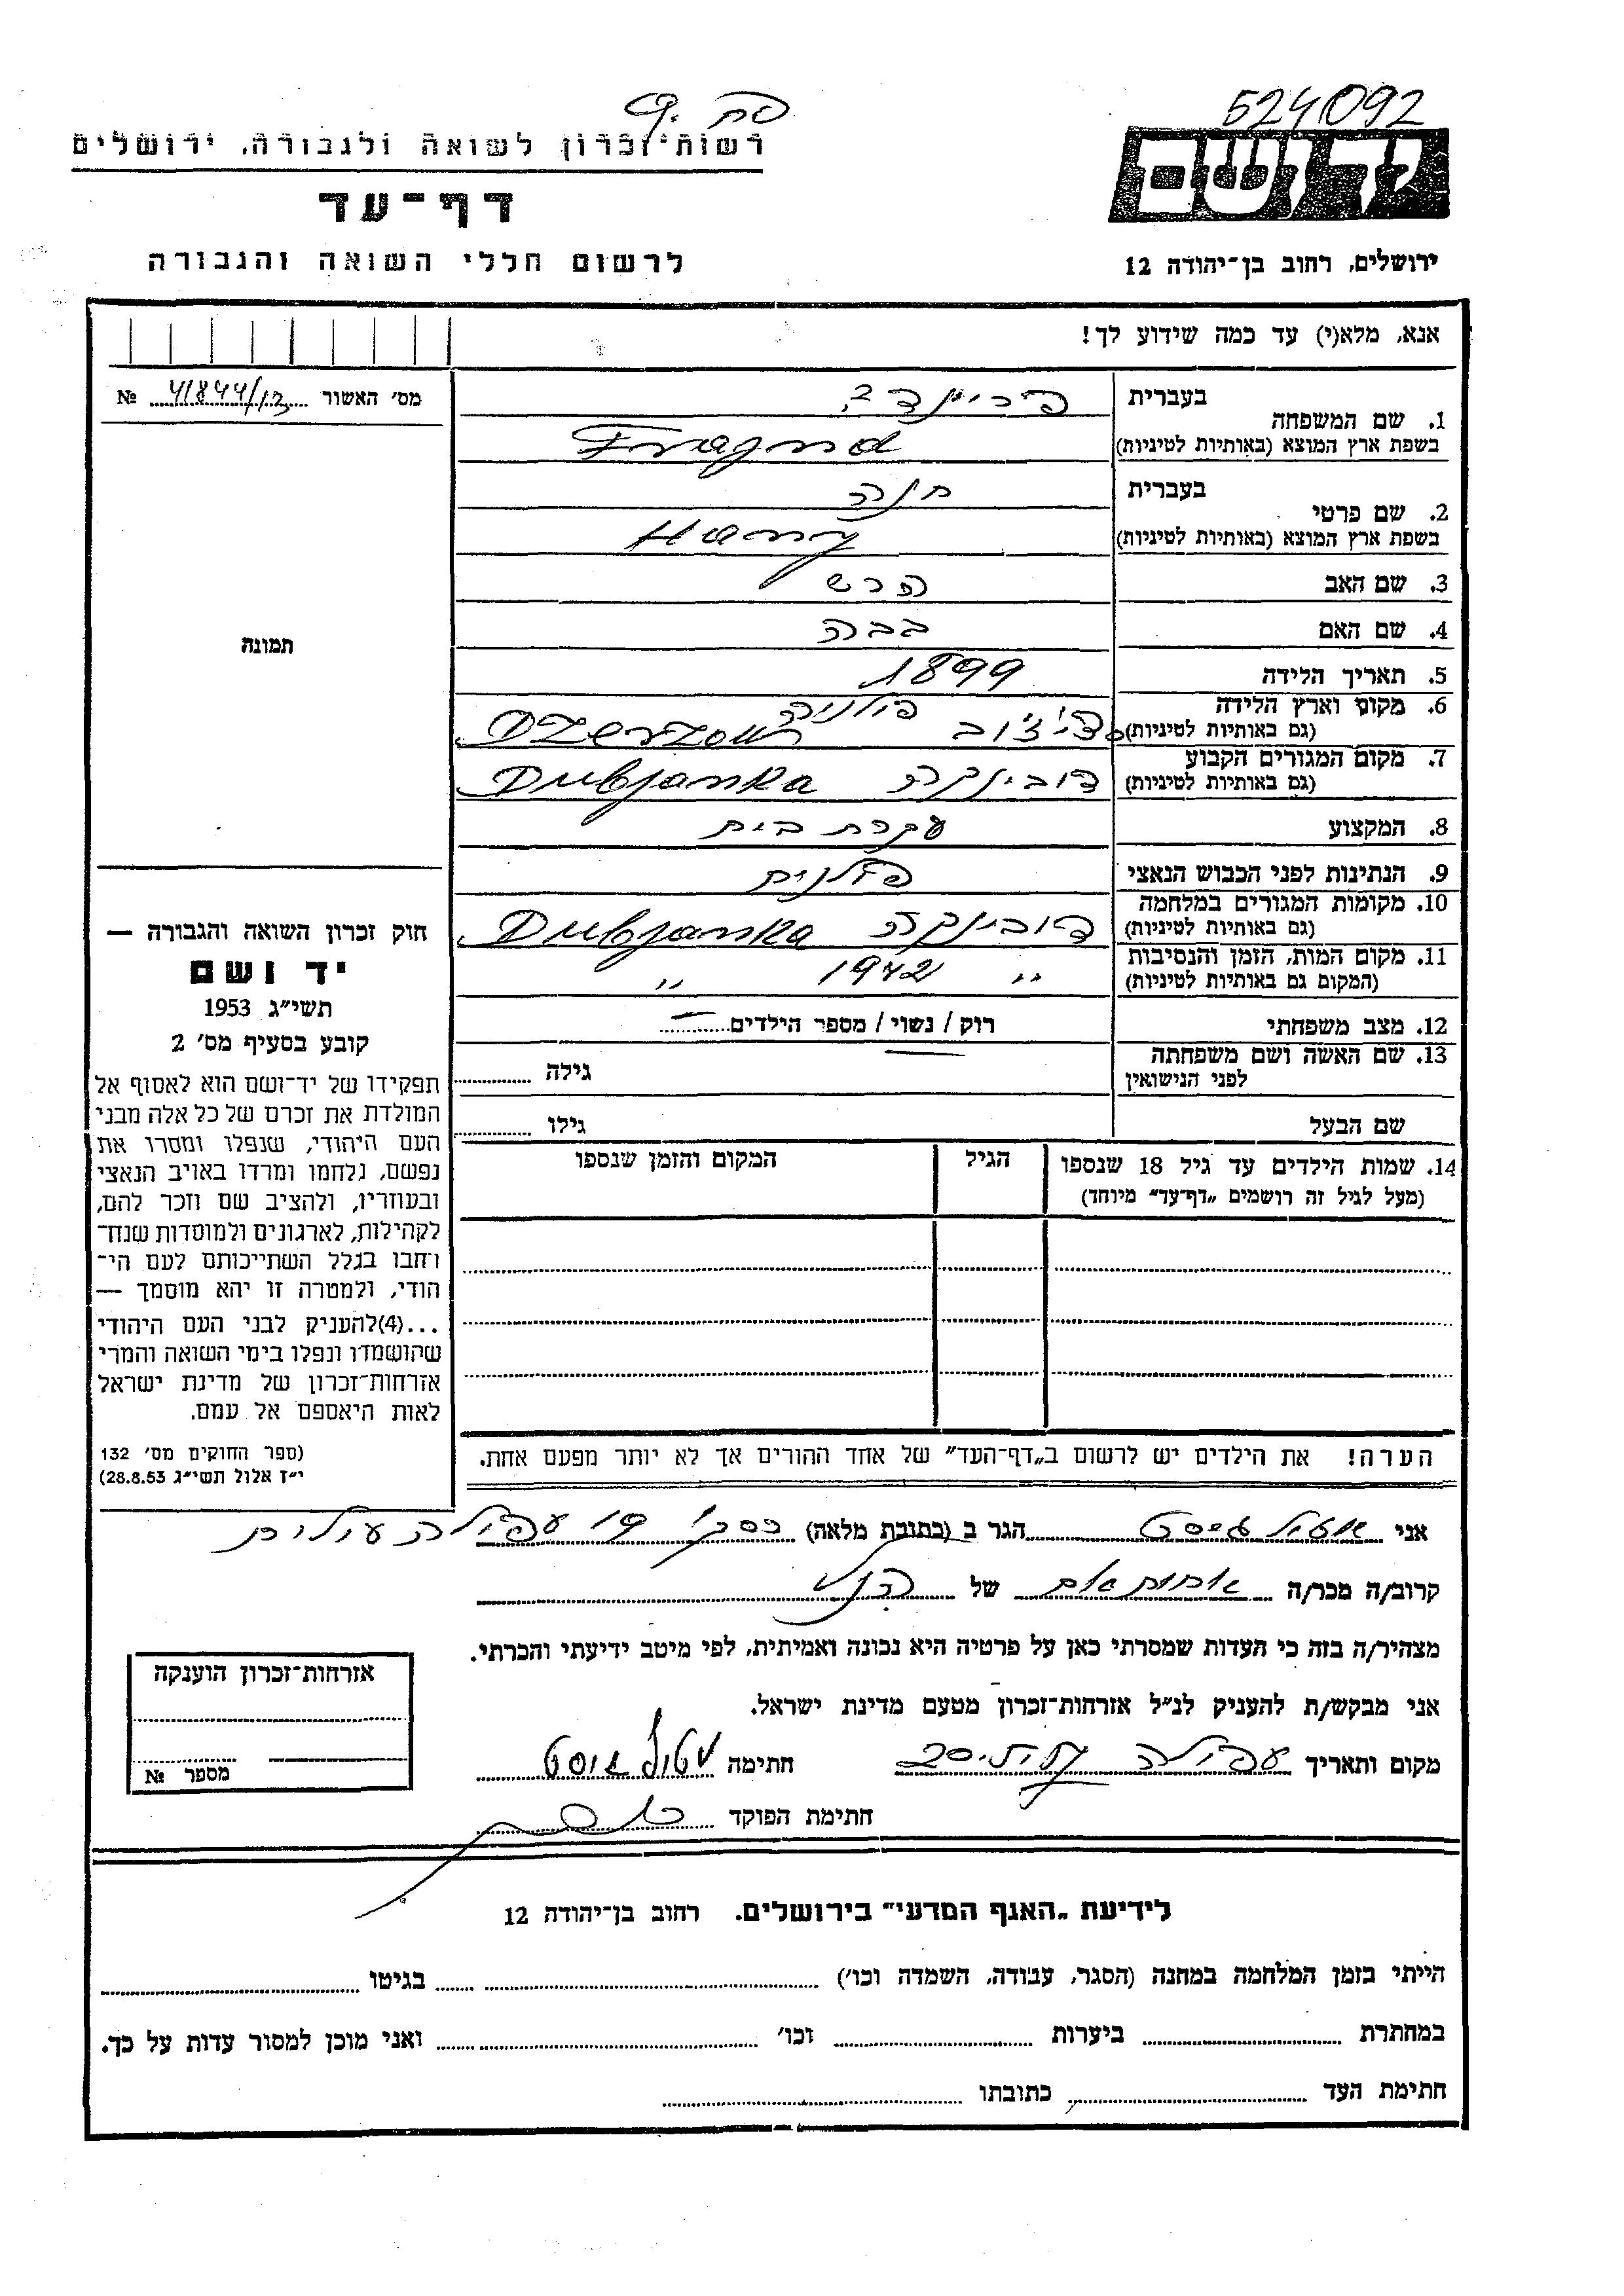 524092
רשות־זכרון לשואה ולגבורה, ירושלים
דף־עד
לרשום חללי השואה והגבורה
ידושם
ירושלים, רחוב בן־יהודה 12
אנא, מלא(י) עד כמה שידוע לך!
מס׳ האשור 41844/13 №
תמונה
חוק זכרון השואה והגבורה —
יד ושם
תשי״ג 1953
קובע בסעיף מס׳ 2
תפקידו של יד־ושם הוא לאסוף אל
המולדת את זכרם של כל אלה מבני
העם היהודי, שנפלו ומסרו את
נפשם, נלחמו ומרדו באויב הנאצי
ובעוזריו, ולהציב שם וזכר להם,
לקהילות, לארגונים ולמוסדות שנח־
רחבו בגלל השתייכותם לעם הי־
הודי, ולמטרה זו יהא מוסמך —
...(4)להעניק לבני העם היהודי
שהושמדו ונפלו בימי השואה והמרי
אזרחות־זכרון של מדינת ישראל
לאות היאספם אל עמם.
(ספר החוקים מס׳ 132
י״ז אלול תשי״ג 28.8.53)
1. שם המשפחה
בעברית פריינד
בשפת ארץ המוצא (באותיות לטיניות) Frajnd
2. שם פרטי
בעברית חנה
בשפת ארץ המוצא (באותיות לטיניות)
3. שם האב הרש
4. שם האם בבה
5. תאריך הלידה 1899
6. מקום וארץ הלידה פולניה
(גם באותיות לטיניות)
7. מקום המגורים הקבוע
(גם באותיות לטיניות) דובינקה Dubjanka
8. המקצוע עקרת בית
9. הנתינות לפני הכבוש הנאצי פולנית
10. מקומות המגורים במלחמה
(גם באותיות לטיניות) דובינקה Dubjanka
11. מקום המות, הזמן והנסיבות
(המקום גם באותיות לטיניות) ״ 1942 ״
12. מצב משפחתי רוק / נשוי / מספר הילדים
13. שם האשה ושם משפחתה
לפני הנישואין גילה
שם הבעל גילו
14. שמות הילדים עד גיל 18 שנספו הגיל המקום והזמן שנספו
(מעל לגיל זה רושמים „דף־עד״ מיוחד)
הערה! את הילדים יש לרשום ב„דף־העד״ של אחד ההורים אך לא יותר מפעם אחת.
אני הגר ב (כתובת מלאה) עפולה עילית
קרוב/ה מכר/ה של
מצהיר/ה בזה כי העדות שמסרתי כאן על פרטיה היא נכונה ואמיתית, לפי מיטב ידיעתי והכרתי.
אני מבקש/ת להעניק לנ״ל אזרחות־זכרון מטעם מדינת ישראל.
מקום ותאריך עפולה חתימה
חתימת הפוקד
אזרחות־זכרון הוענקה
מספר №
לידיעת „האגף המדעי״ בירושלים. רחוב בן־יהודה 12
הייתי בזמן המלחמה במחנה (הסגר, עבודה, השמדה וכו׳) בגיטו
במחתרת ביערות וכו׳ ואני מוכן למסור עדות על כך.
חתימת העד כתובתו